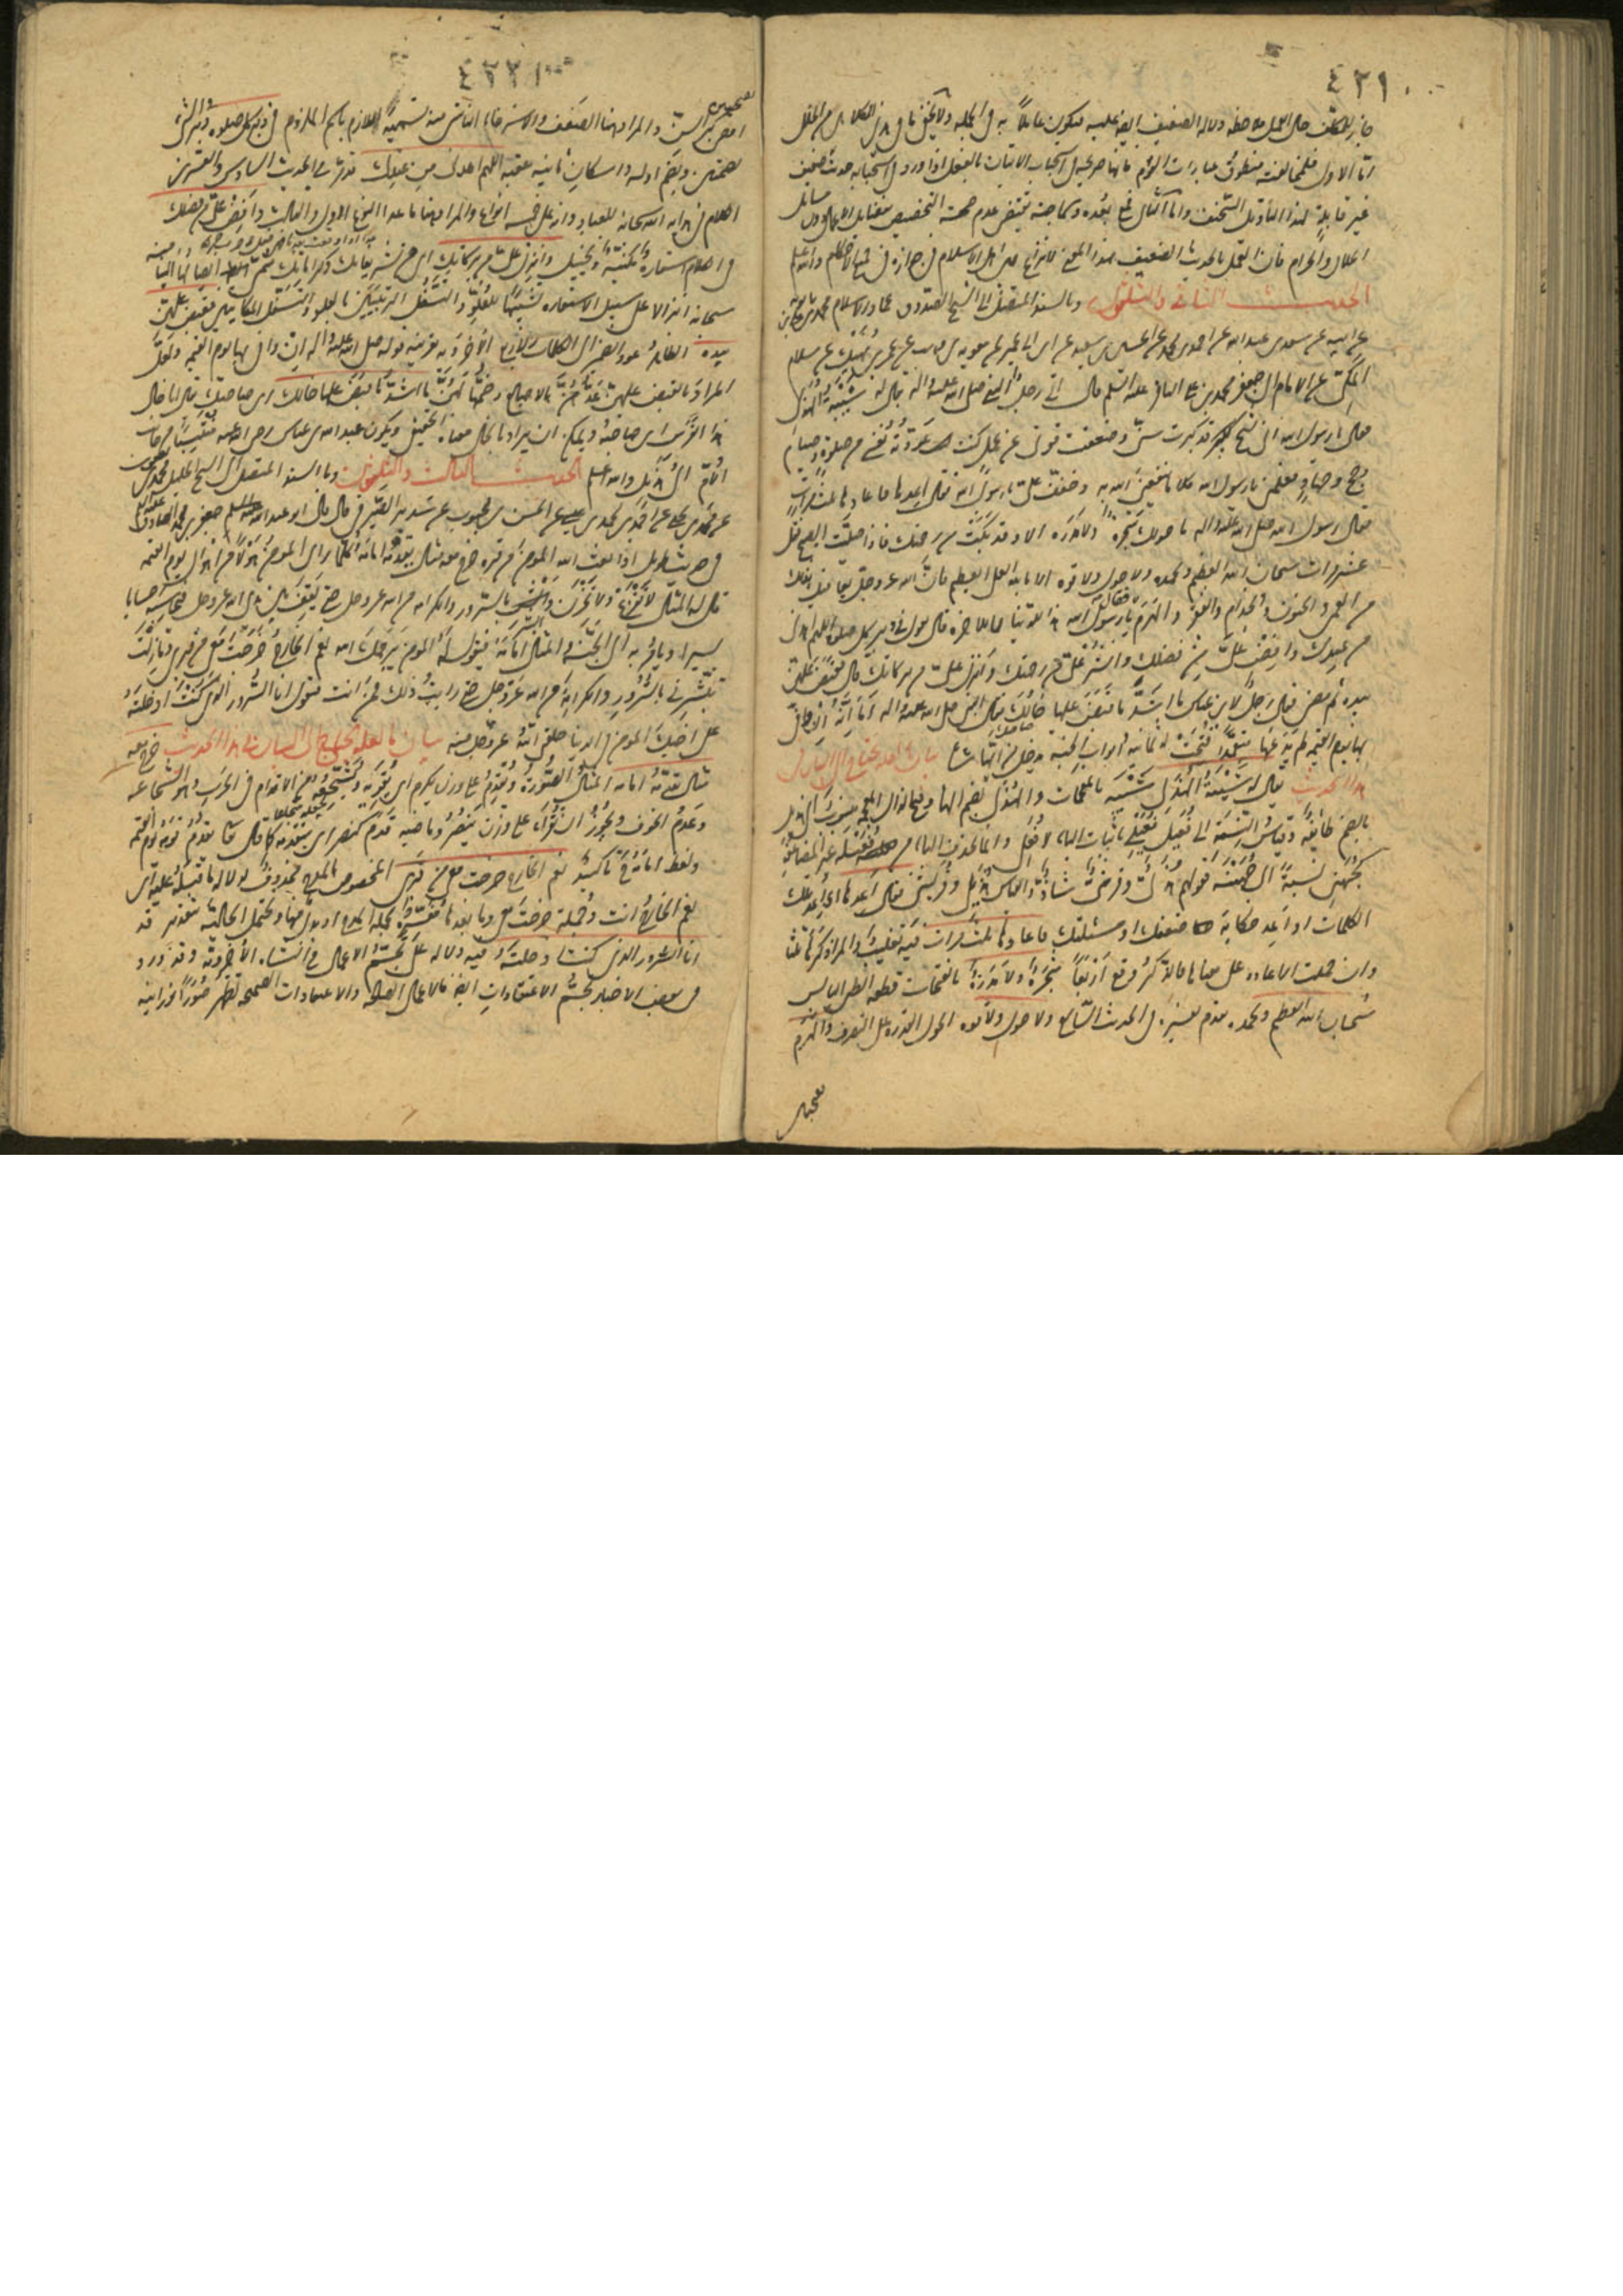 ٤٣١
جاز للمكلف حال العمل ملاحظة دلالة الضعيف ايضا عليه فيكون عاملا به في الجملة ولا يخفى ما في هذا الكلام من الخلل
اما الاول فلمخالفته منطوق عبارات القوم فانها صريحة في استحباب الاتيان بالفعل اذا ورد في استحبابه حديث ضعيف
غير قابلة لهذا التأويل السخيف واما الثاني فمع بعده وسماجته يقتضي عدم صحة التخصيص بفضايل الاعمال دون مسائل
الحلال والحرام فان العمل بالحديث الضعيف بهذا المعنى لا نزاع بين اهل الاسلام في جوازه في جميع الاحكام والله اعلم
الحديث الثاني والثلثون وبالسند المتصل الى الشيخ الصدوق عماد الاسلام محمد بن بابويه
عن ابيه عن سعد بن عبد الله عن احمد بن محمد عن الحسين بن سعيد عن ابن ابي عمير عن معوية بن وهب عن عمر بن نهيك عن سلام
المكي عن الامام ابي جعفر محمد بن علي الباقر عليه السلم قال اتى رجل النبي صلى الله عليه واله يقال له شيبة الهذلي
فقال يا رسول الله اني شيخ كبير قد كبرت سني وضعفت قوتي عن عمل كنت عودته نفسي من صلوة وصيام
وحج وجهاد فعلمني يا رسول الله كلاما ينفعني الله به وخفف علي يا رسول الله فقال اعدها فاعادها ثلث مرات
فقال رسول الله صلى الله عليه واله ما حولك شجرة ولا مدرة الا وقد بكت من رحمتك فاذا صليت الصبح فقل
عشر مرات سبحان الله العظيم وبحمده ولا حول ولا قوة الا بالله العلي العظيم فان الله عز وجل يعافيك بذلك
من العمى والجنون والجذام والفقر والهرم فقال يا رسول الله هذا للدنيا فما للاخرة قال تقول في دبر كل صلوة اللهم اهدني
من عندك وافض علي من فضلك وانشر علي من رحمتك وانزل علي من بركاتك قال فقبض عليهن
بيده ثم مضى فقال رجل لابن عباس ما اشد ما قبض عليها خالك فقال النبي صلى الله عليه واله اما انه ان وافى
بها يوم القيمة لم يدعها متعمدا فتحت له ثمانية ابواب الجنة يدخل من ايها شاء بيان ما لعله يحتاج الى البيان في
هذا الحديث يقال له شيبة الهذلي شيبة بالمعجمات والهذلي بضم الهاء وفتح الذال المعجمة منسوب الى هذيل
بالضم طائفة وقياس النسبة الى فعيل فعيلي باثبات الياء لا فعلي وانما تحذف الياء من فعيلة غير المضاعف
كجهني نسبة الى جهينة فقولهم هذلي وقرشي شاذ والقياس هذيلي وقريشي فقال اعدها اي اعد تلك
الكلمات او اعد حكاية ضعفك او مسئلتك فاعادها ثلث مرات فيه تغليب والمراد كررها ثلثا
وان حملت الاعادة على معناها فالذكر وقع اربعا شجرة ولا مدرة بالفتحات قطعة الطين اليابس
سبحان الله العظيم وبحمده تقدم تفسيره في الحديث السابع ولا حول ولا قوة الحول القدرة على التصرف والهرم
٤٣٢
اقصى كبر السن والمراد هنا الضعف والاسترخاء الناشي منه تسمية اللازم باسم الملزوم في دبر كل صلوة دبر الشيء
بضمتين وبضم اوله واسكان ثانيه عقبه اللهم اهدني من عندك قد مر في الحديث السادس والعشرين
الكلام في هداية الله سبحانه للعباد وانه على خمسة انواع والمراد هنا ما عدا النوع الاول والثالث وافض علي من فضلك
في الكلام استعارة مكنية وتخييل وانزل علي من بركاتك اي من تشريفاتك وكراماتك
سبحانه انزالا على سبيل الاستعارة تشبيها للعلو والتسفل الرتبيين بالعلو والتسفل المكانيين فقبض عليهن
بيده الظاهر عود الضمير الى الكلمات الاربع الاخروية بقرينة قوله صلى الله عليه واله ان وافى بها يوم القيمة ولعل
المراد بالقبض عليهن عدهن بالاصابع وضمها لهن ما اشد ما قبض عليها خالك اي صاحبك يقال انا خال
هذا الفرس اي صاحبه ويمكن ان يراد بالخال معناه الحقيقي ويكون عبد الله بن عباس رضي الله عنه منتسبا من جانب
الام الى هذيل والله اعلم الحديث الثالث والثلثون وبالسند المتصل الى الشيخ الجليل محمد بن يعقوب
عن محمد بن يحيى عن احمد بن محمد بن عيسى عن الحسن بن محبوب عن سدير الصيرفي قال قال ابو عبد الله جعفر بن محمد الصادق عليه السلم
في حديث طويل اذا بعث الله المؤمن من قبره خرج معه مثال يقدمه امامه كلما راى المؤمن هولا من اهوال يوم القيمة
قال له المثال لا تفزع ولا تحزن وابشر بالسرور والكرامة من الله عز وجل حتى يقف بين يدي الله عز وجل فيحاسبه حسابا
يسيرا ويامر به الى الجنة والمثال امامه فيقول له المؤمن يرحمك الله نعم الخارج خرجت معي من قبري وما زلت
تبشرني بالسرور والكرامة من الله عز وجل حتى رايت ذلك فمن انت فيقول انا السرور الذي كنت ادخلته
على اخيك المؤمن في الدنيا خلقني الله عز وجل منه بيان ما لعله يحتاج الى البيان في هذا الحديث خرج معه
مثال يقدمه امامه المثال الصورة ويقدم على وزن يكرم اي يقويه ويشجعه من الاقدام في الحرب وهو الشجاعة
وعدم الخوف ويجوز ان يقرا على وزن ينصر وماضيه قدم كنصر اي يتقدمه كما قال تعالى يقدم قومه يوم القيمة
ولفظ امامه تاكيد نعم الخارج خرجت معي من قبري المخصوص بالمدح محذوف لدلالة ما قبله عليه اي
نعم الخارج انت وجملة خرجت معي وما بعدها مفسرة لجملة المدح او بدل منها ويحتمل الحالية بتقدير قد
انا السرور الذي كنت ادخلته فيه دلالة على تجسم الاعمال في النشاة الاخروية وقد ورد
في بعض الاخبار تجسم الاعتقادات ايضا فالاعمال الصالحة والاعتقادات الصحيحة تظهر صورا نورانية